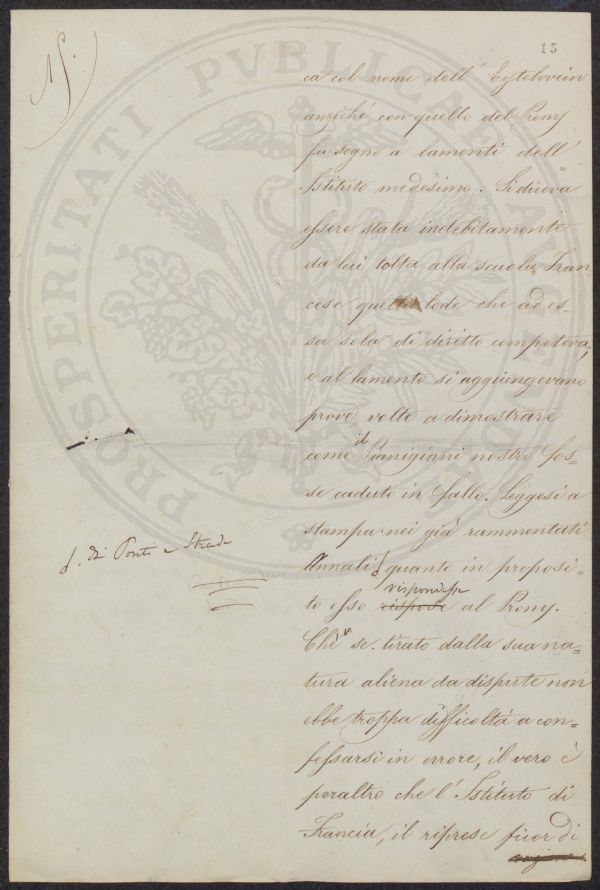 15
ca col nome dell' Eytelwein
anziché con quello del Prony
fu segno a lamenti dell'
Istituto medesimo. Si diceva
essere stata indebitamente
da lui tolta alla scuola Fran=
cese quella lode che ad es=
sa sola di diritto competeva,
e al lamento si aggiungevano
prove volte a dimostrare
come il Panigiani nostro fos=
se caduto in fallo. Leggesi a
stampa nei già rammentati
Annali quanto in proposi=
to esso rispose rispondesse al Prony.
Chè se tirato dalla sua na=
tura aliena da dispute non
ebbe troppa difficoltà a con=
fessarsi in errore, il vero è
peraltro che l'Istituto di
Francia, il riprese fuor di
ragione.
di Ponti e Strade
PROSPERITATI PVBLICAE